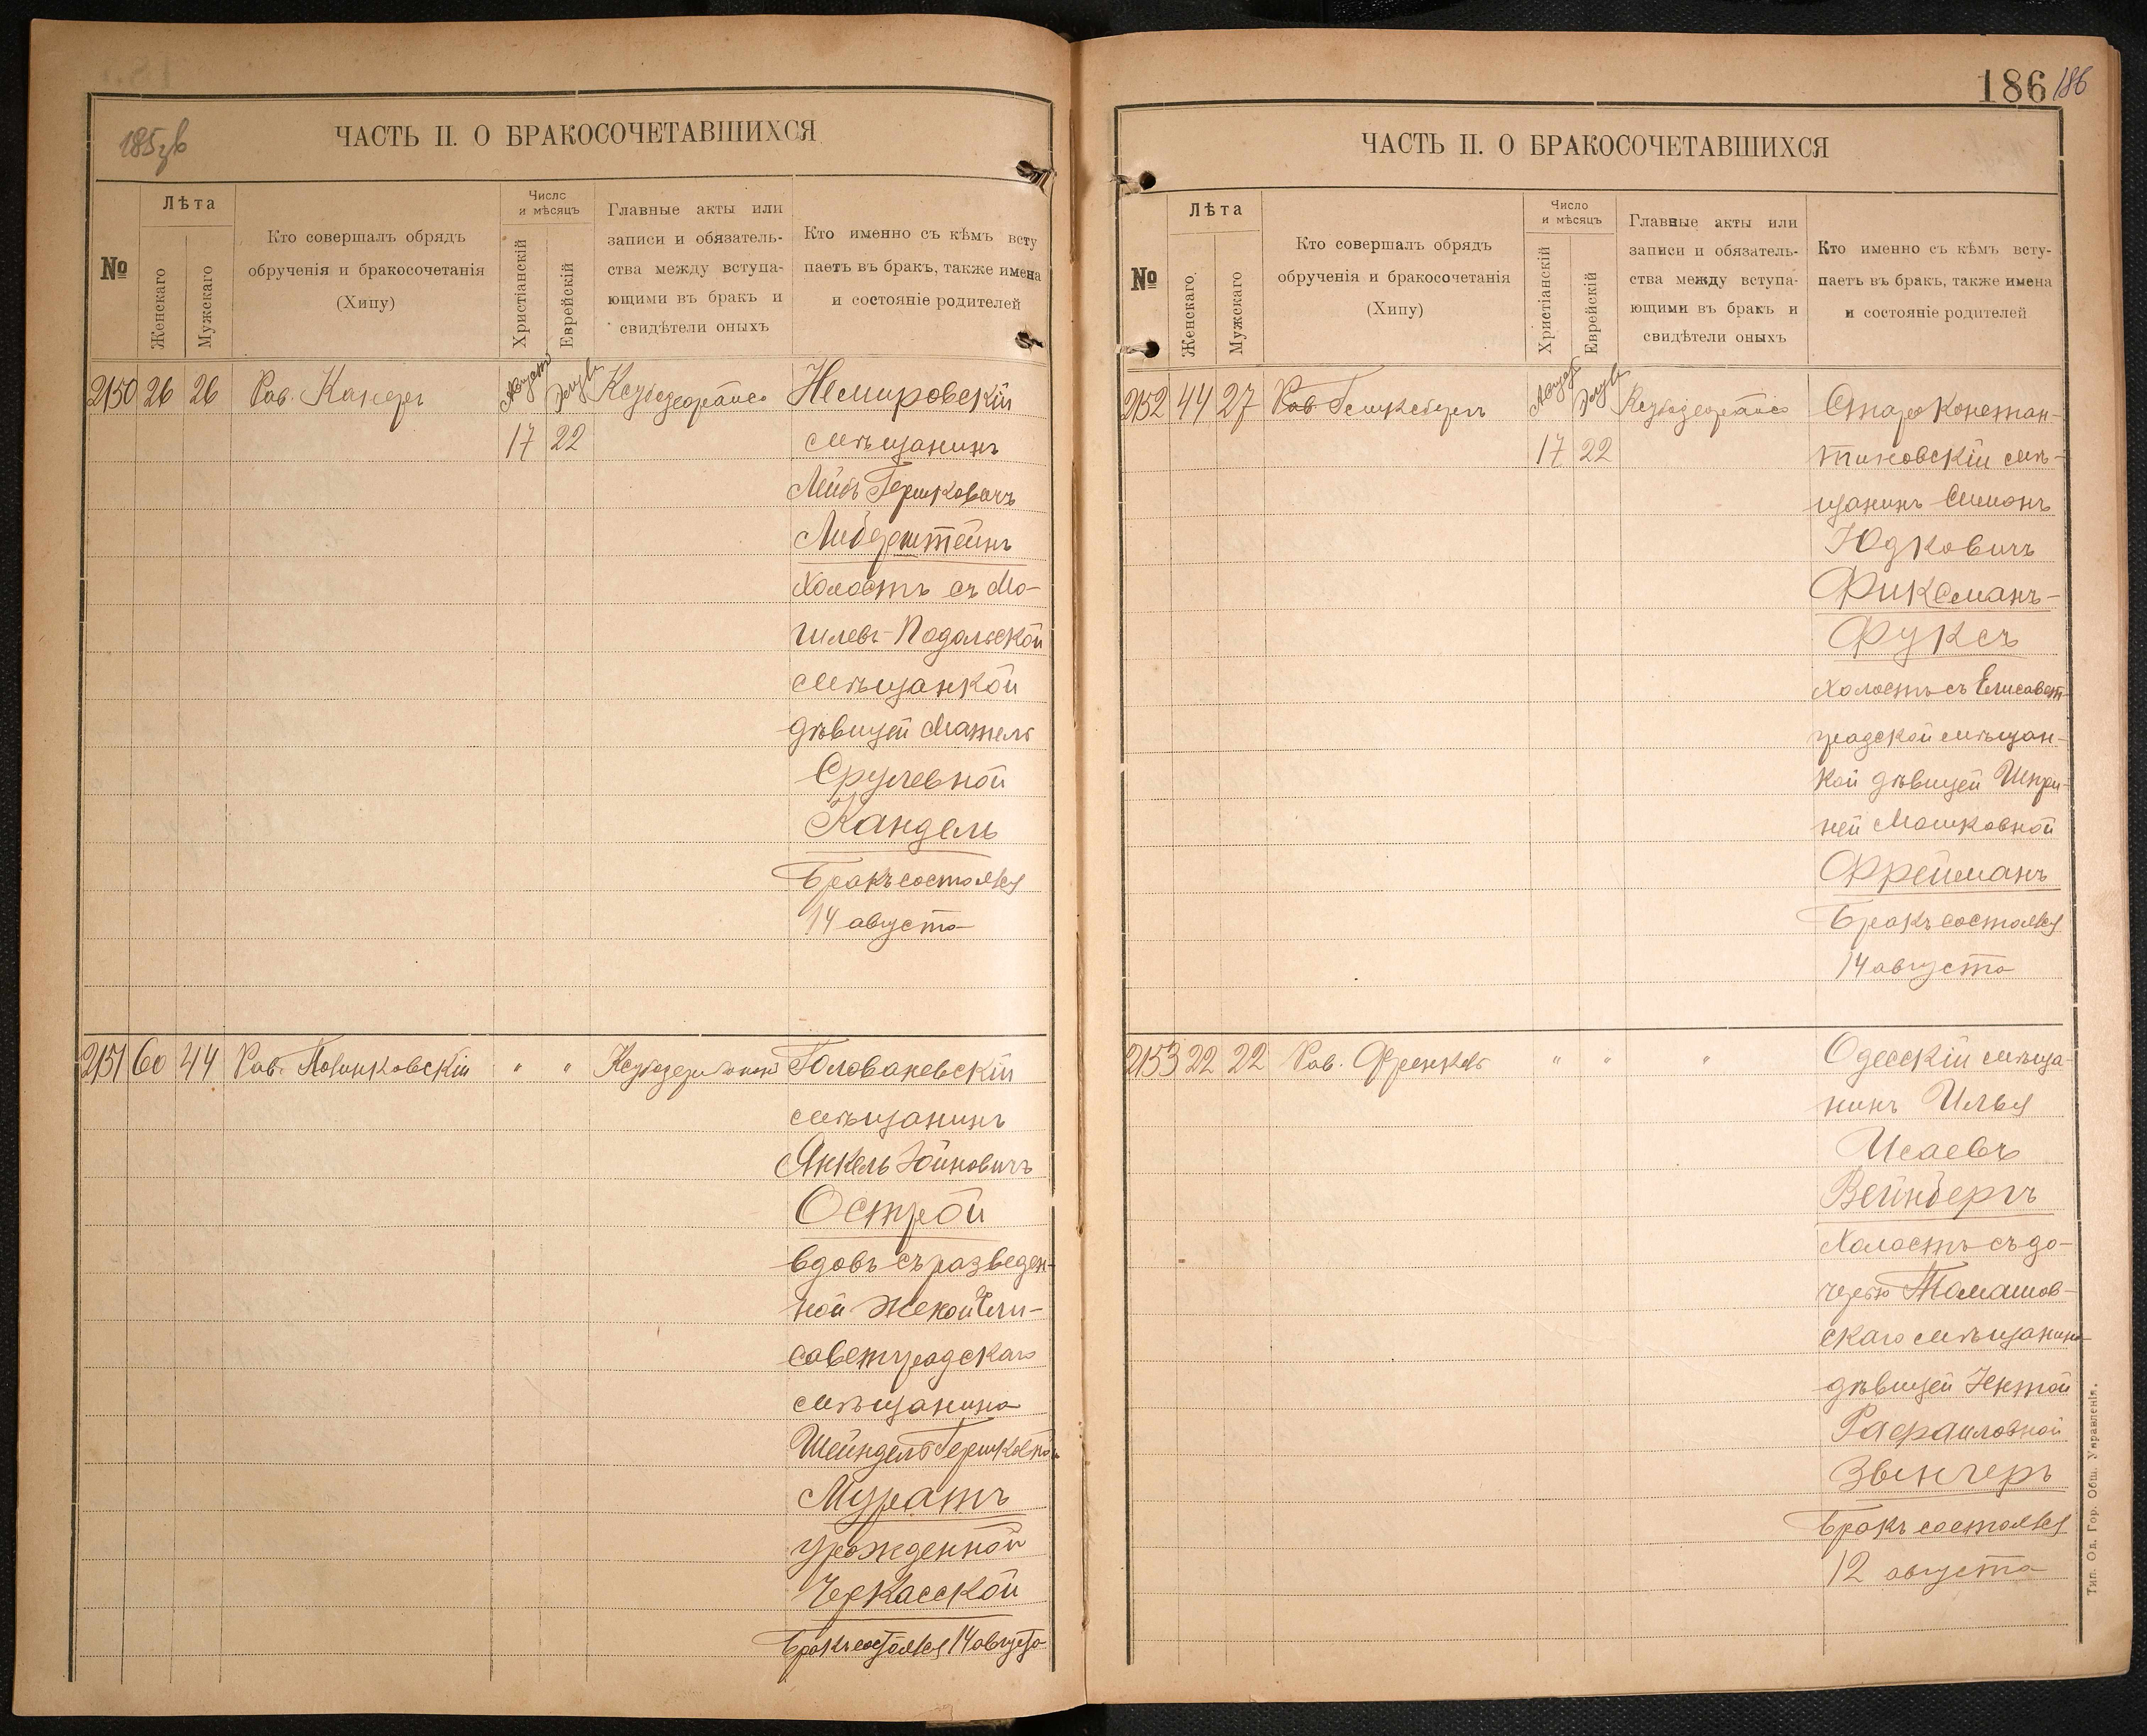 ЧАСТЬ II. О БРАКОСОЧЕТАВШИХСЯ
№
Лѣта
Женскаго
Мужскаго
Кто совершалъ обрядъ
обрученія и бракосочетанія
(Хипу)
Число
и мѣсяцъ
Христіанскій
Еврейскій
Главные акты или
записи и обязатель-
ства между вступа-
ющими въ бракъ и
свидѣтели оныхъ
Кто именно съ кѣмъ всту
паетъ въ бракъ, также имена
и состояніе родителей
2150 26 26 Рав. Августъ Немировскій
17 22 мѣщанинъ
Лейбъ Гершковичъ
Либерштейнъ
Холостъ съ Мо-
гилевъ-Подольской
мѣщанкой
дѣвицей Матель
Срулевной
Кандель
Бракъ состоялся
14 августа
2151 60 44 Рав. " " Голованевскій
мѣщанинъ
Янкель Іойновичъ
Острой
вдовъ съ разведен-
ной женой Ели-
саветградскаго
мѣщанина
Шейндель Гершковной
Муратъ
урожденной
Черкасской
Бракъ состоялся 14 августа
186 186
ЧАСТЬ II. О БРАКОСОЧЕТАВШИХСЯ
№
Лѣта
Женскаго
Мужскаго
Кто совершалъ обрядъ
обрученія и бракосочетанія
(Хипу)
Число
и мѣсяцъ
Христіанскій
Еврейскій
Главные акты или
записи и обязатель-
ства между вступа-
ющими въ бракъ и
свидѣтели оныхъ
Кто именно съ кѣмъ всту-
паетъ въ бракъ, также имена
и состояніе родителей
2152 44 27 Рав. Августъ Староконстан-
17 22 тиновскій мѣ-
щанинъ Симонъ
Юдковичъ
Фиксманъ-
Фуксъ
Холостъ съ Елисавет-
градской мѣщан-
кой дѣвицей Шпри-
ней Мошковной
Фрейманъ
Бракъ состоялся
14 августа
2153 22 22 Рав. Френкель " " " Одесскій мѣща-
нинъ Илья
Исаевъ
Вейнбергъ
Холостъ съ до-
черью Томашов-
скаго мѣщанина
дѣвицей Ентой
Рафаиловной
Звенчеръ
Бракъ состоялся
12 августа
Тип. Од. Гор. Общ. Управленія.